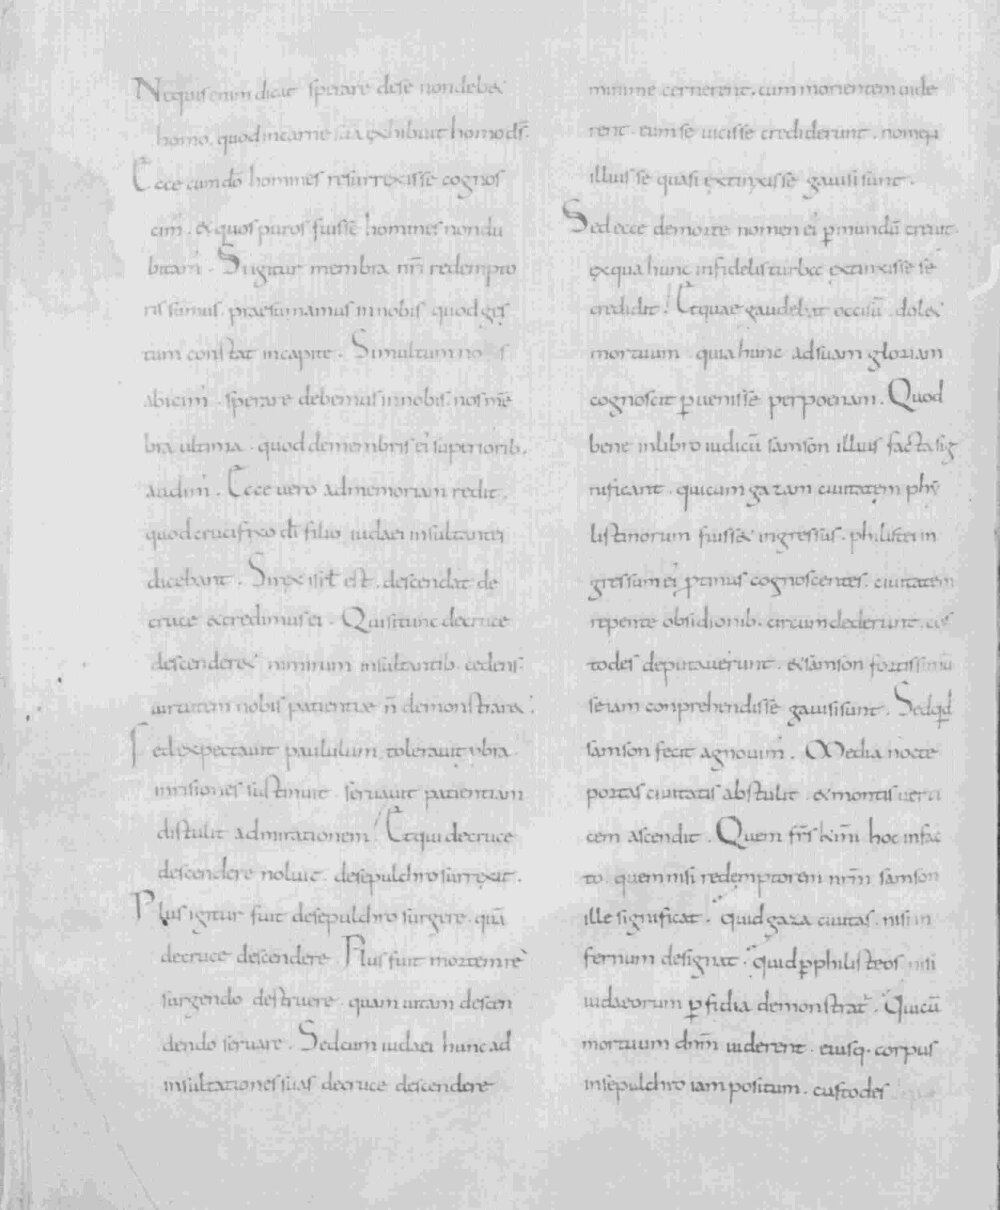 Nequis enim dicat sperare dese nondebet
homo. quod incarne sua exhibuit homo ds̄.
Ecce cum dō homines resurrexisse cognos
cim̄. & quos puros fuisse homines non du
bitam̄. Si igitur membra nr̄i redempto
ris sumus. praesumamus innobis quod ges
tum constat incapite. Si multum nos
abicim̄. sperare debemus innobis nos mē
bra ultima. quod demembris ei superiorib.
audim̄. Ecce uero admemoriam redit.
quod crucifixo dī filio iudaei insultantes
dicebant. Si rex isrł est. descendat de
cruce & credimus ei. Qui si tunc decruce
descenderet nimirum insultantib. cedens.
uirtutem nobis patientiae n̄ demonstraret.
Sed expectauit paululum. tolerauit obpra
inrisiones sustinuit. seruauit patientiam
distulit admirationem. Et qui decruce
descendere noluit. desepulchro surrexit.
Plus igitur fuit desepulchro surgere. quā
decruce descendere. Plus fuit mortem re
surgendo destruere. quam uitam descen
dendo seruare. Sed cum iudaei hunc ad
insultationes suas decruce descendere
minime cernerent. cum morientem uide
rent. eum se uicisse crediderunt. nomenq;
illius se quasi extinxisse gauisi sunt.
Sed ecce demorte nomen ei ꝑmundū creuit.
exqua hunc infidelis turba extinxisse se
credidit. Et quae gaudebat occisū. dolet
mortuum quia hunc adsuam gloriam
cognoscit ꝑuenisse perpoenam. Quod
bene inlibro iudicū samson illius facta sig
nificant. qui cum gazam ciuitatem phy
listinorum fuisset ingressus. philistei in
gressum ei ꝓtinus cognoscentes. ciuitatem
repente obsidionib. circumdederunt. cus
todes deputauerunt. & samson fortissimū
se iam conprehendisse gauisi sunt. Sed qd
samson fecit agnouim̄. Media nocte
portas ciuitatis abstulit. & montis uerti
cem ascendit. Quem fr̄s kmī hoc infac
to. quem nisi redemptorem nr̄m samson
ille significat. quid gaza ciuitas. nisi in
fernum designat. quid ꝑphilisteos nisi
iudaeorum ꝑfidia demonstrat. Qui cū
mortuum dnm̄ uiderent. eiusq. corpus
insepulchro iam positum. custodes